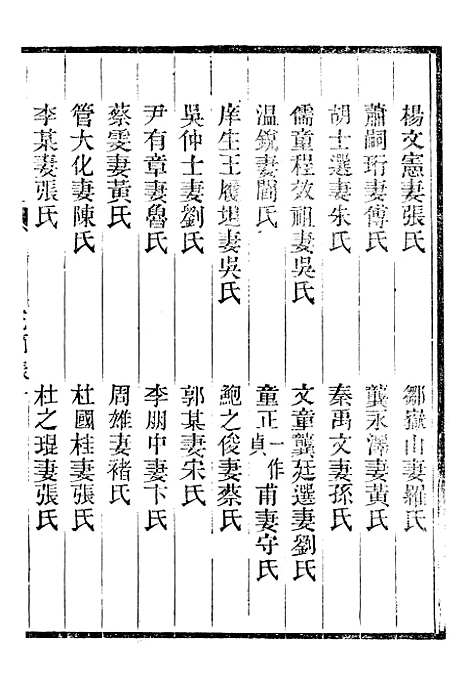 楊文憲妻張氏　鄒嶽山妻羅氏
蕭嗣珩妻傅氏　龔永澤妻黃氏
胡士選妻朱氏　秦禹文妻孫氏
儒童程效祖妻吳氏　文童龔廷選妻劉氏
温銳妻閻氏　童正一作貞甫妻守氏
庠生王履坦妻吳氏　鮑之俊妻蔡氏
吳仲士妻劉氏　郭某妻宋氏
尹有章妻魯氏　李朋中妻卞氏
蔡雯妻黃氏　周雄妻褚氏
管大化妻陳氏　杜國桂妻張氏
李某妻張氏　杜之琨妻張氏